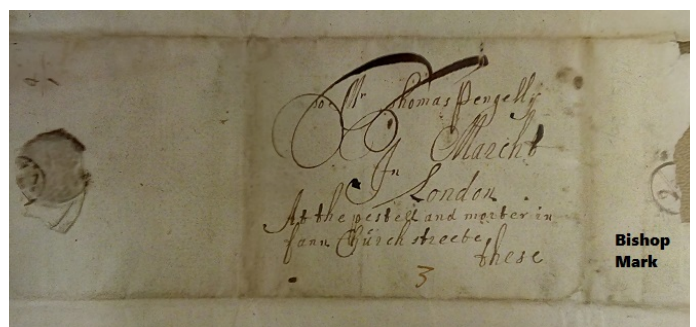 For Mr Thomas Pengelly
Marcht
In
London
At the pestell and morter in
fann Church streete
these
3
Bishop
Mark